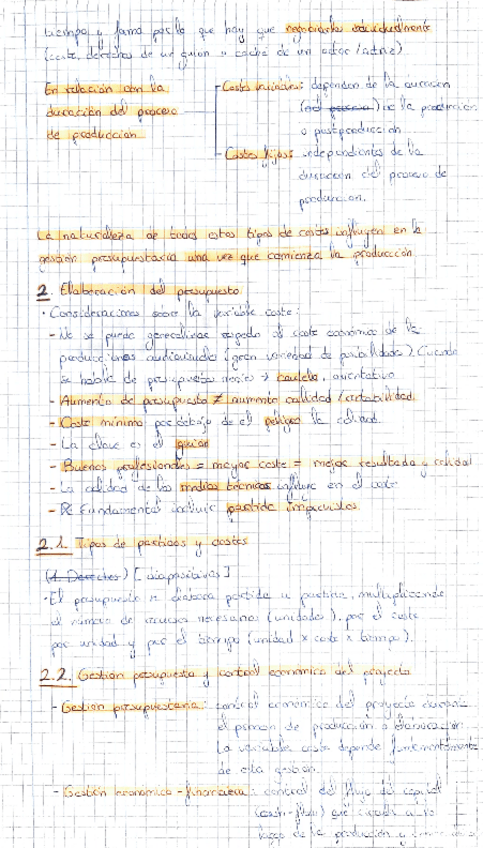 tiempo y fama por lo que hay que negociarlos individualmente
(coste derechos de un guion o caché de un actor/actriz)
En relación con la
duración del proceso
de producción
Costes variables: dependen de la duración
de la producción
o postproducción.
Costes fijos: independientes de la
duración del proceso de
producción.
La naturaleza de todos estos tipos de costes influyen en la
gestión presupuestaria una vez que comienza la producción
2. Elaboración del presupuesto
· Consideraciones sobre la variable coste:
- No se puede generalizar respecto al coste económico de las
producciones audiovisuales (gran variedad de posibilidades). Cuando
se habla de presupuestos medios → cautela, orientativo
- Aumento de presupuesto ≠ aumento calidad/rentabilidad
- Coste mínimo por debajo de el peligra la calidad
- La clave es el guion
- Buenos profesionales = mayor coste = mejor resultado y calidad
- La calidad de los medios técnicos influye en el coste
- Es fundamental incluir partida imprevistos.
2.1. Tipos de partidas y costes
(1. Derechos) [diapositivas]
· El presupuesto se elabora partida a partida, multiplicando
el número de recursos necesarios (unidades), por el coste
por unidad y por el tiempo (unidad x coste x tiempo).
2.2. Gestión presupuesto y control económico del proyecto
- Gestión presupuestaria: control económico del proyecto durante
el proceso de producción o elaboración.
La variable coste depende
de esta gestión.
- Gestión económica-financiera: control del flujo del capital
(cash-flow) que a lo
largo de la producción y